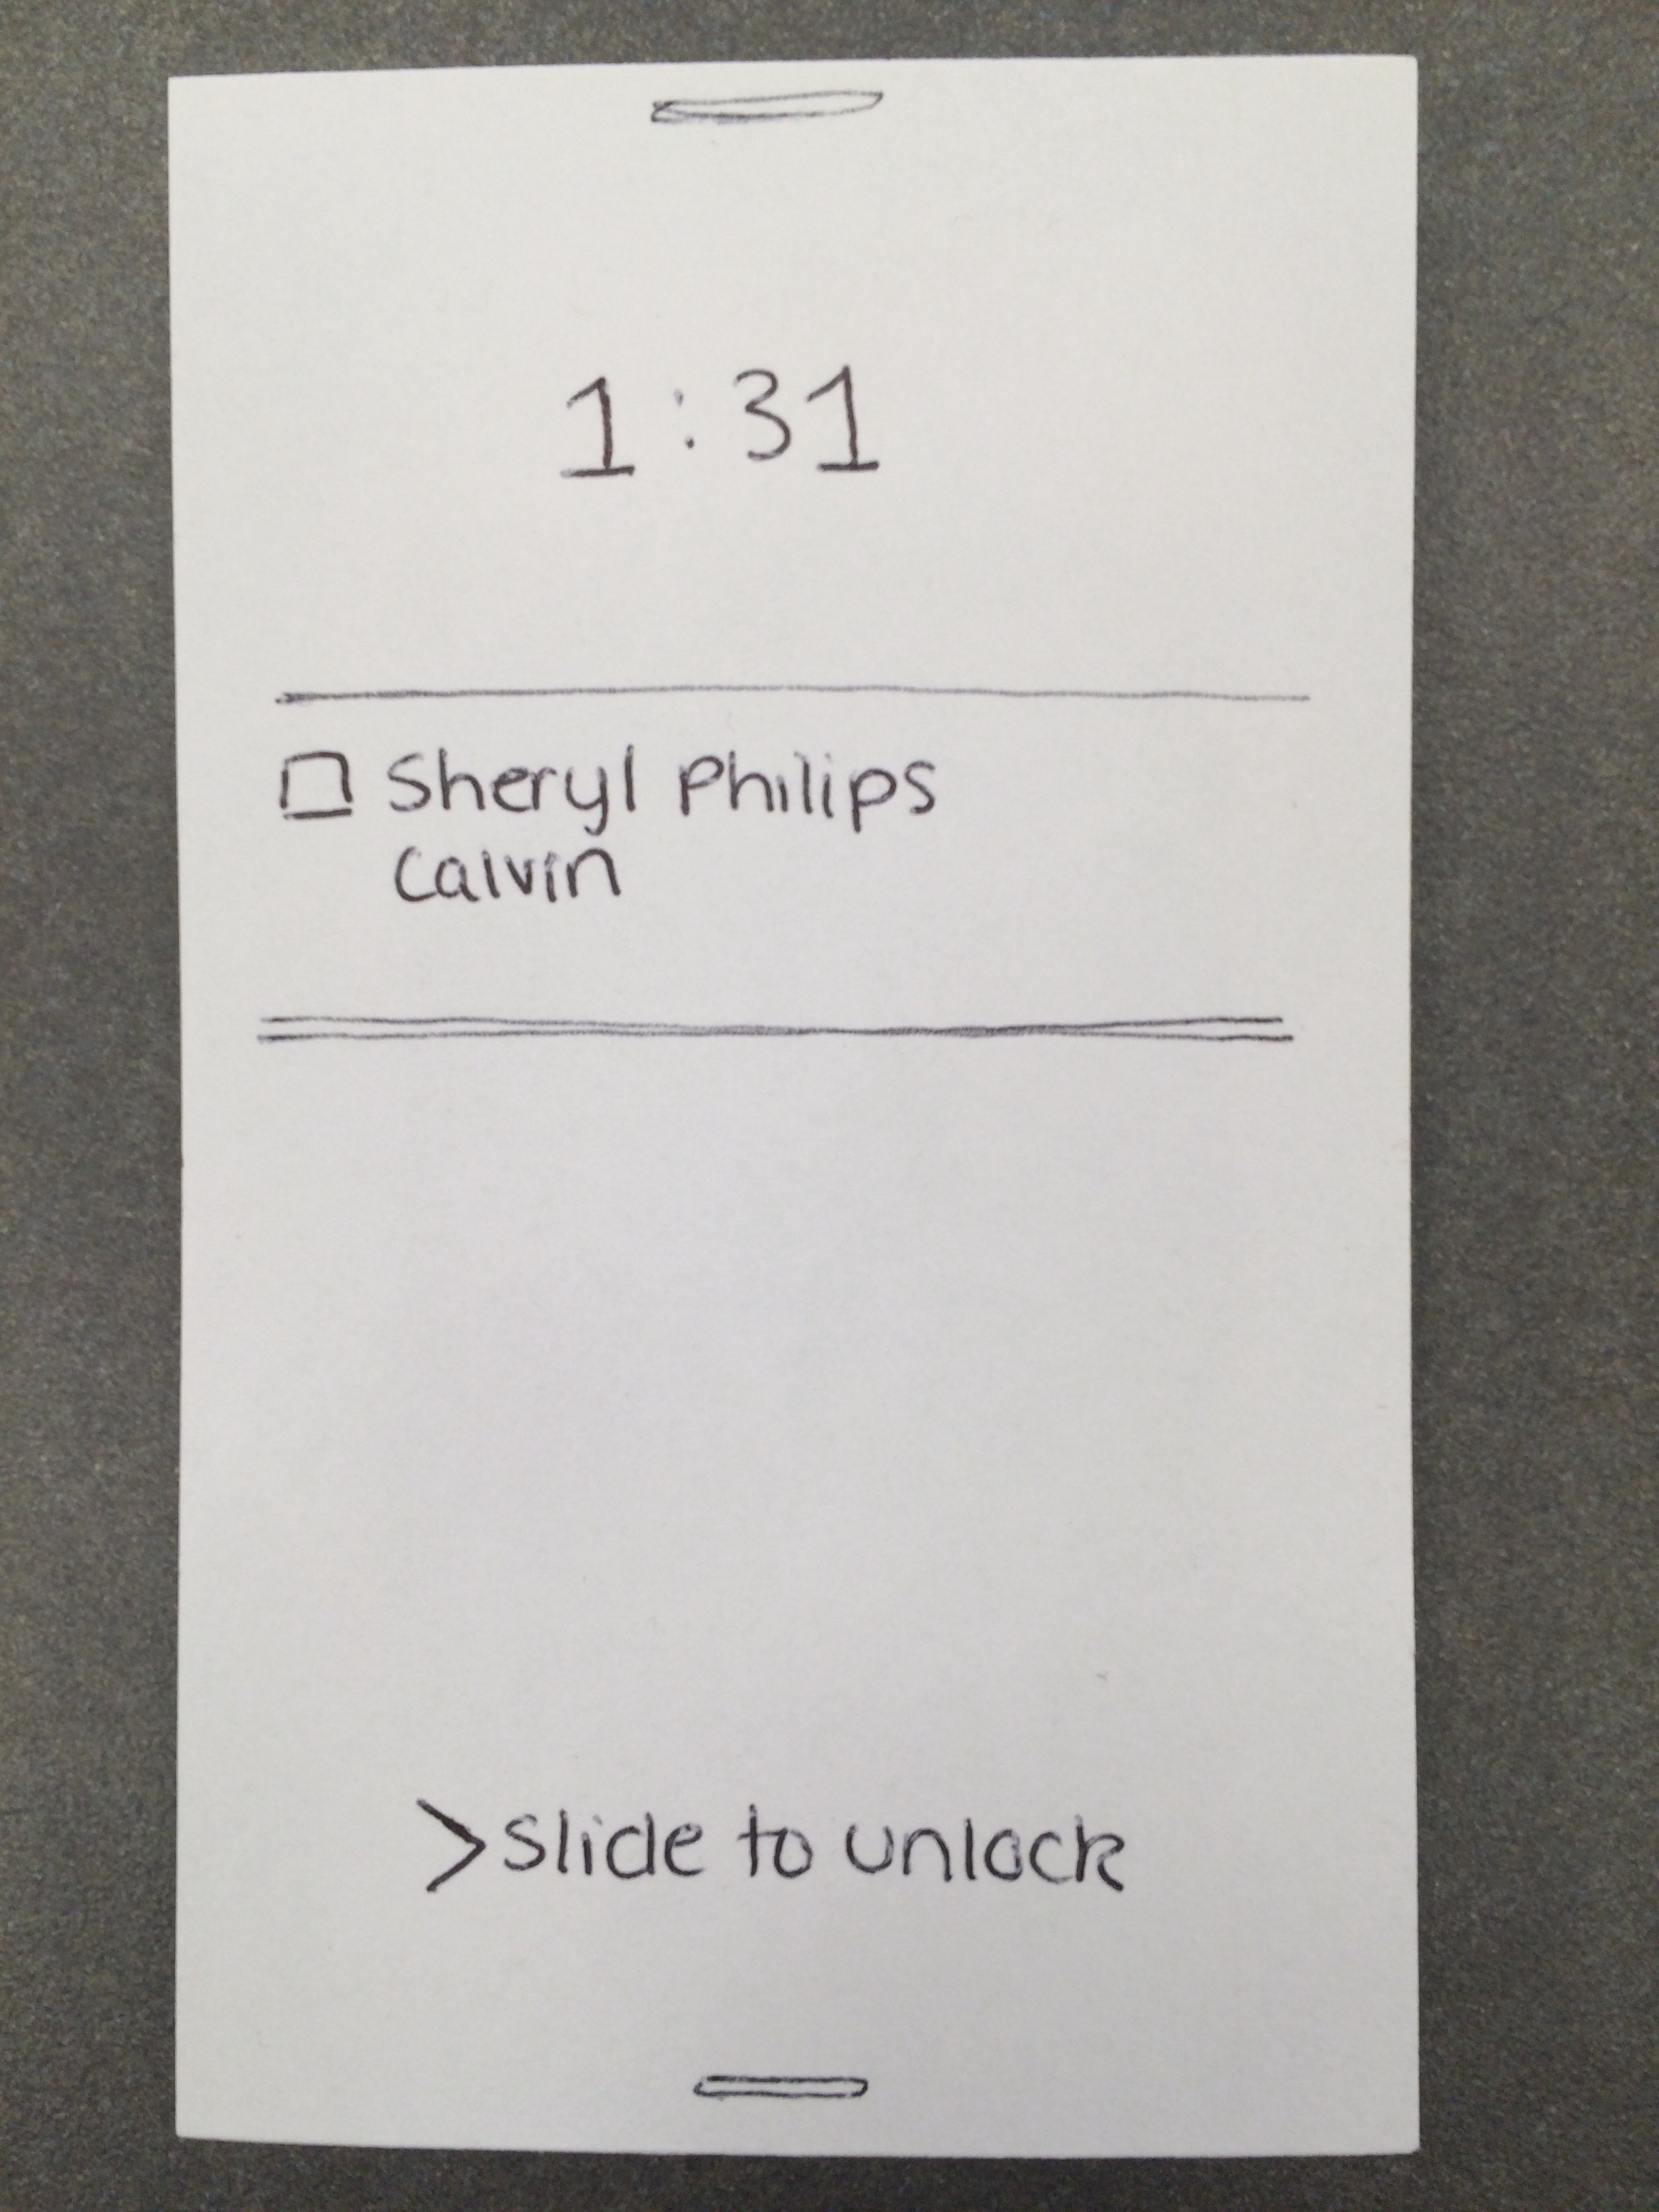 1:31
Sheryl Philips
Calvin
>Slide to unlock